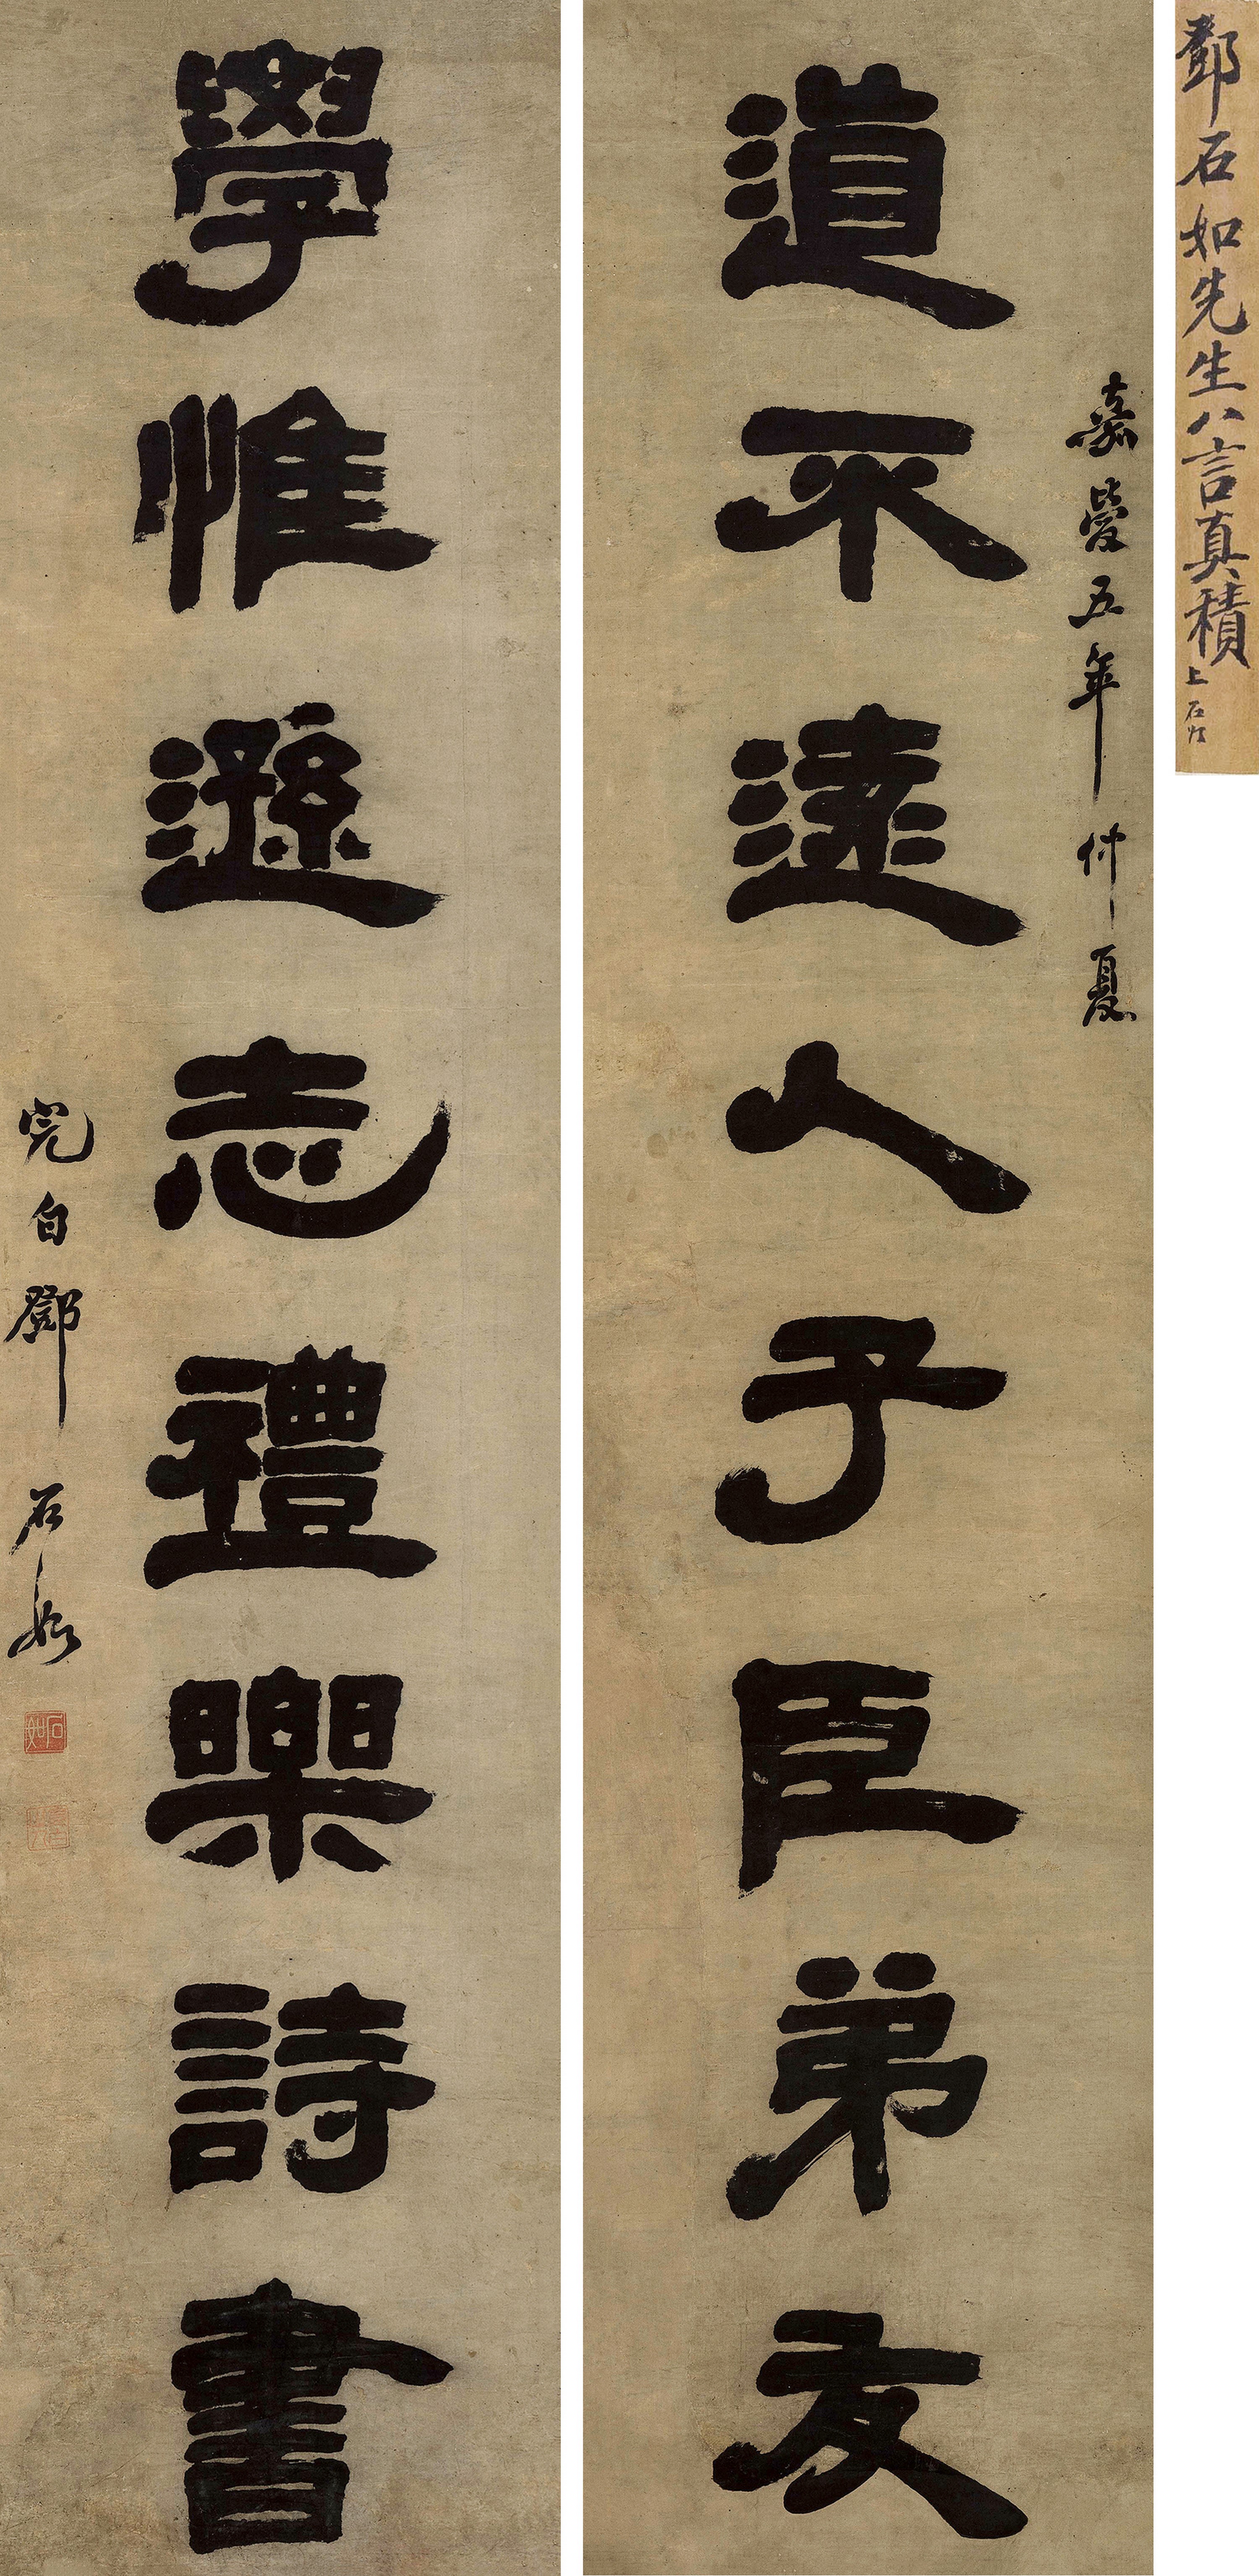 鄧石如先生八言真積上石片
嘉慶五年仲夏
道不遠人子臣弟友
學惟遜志禮樂詩書
完白鄧石如
石如